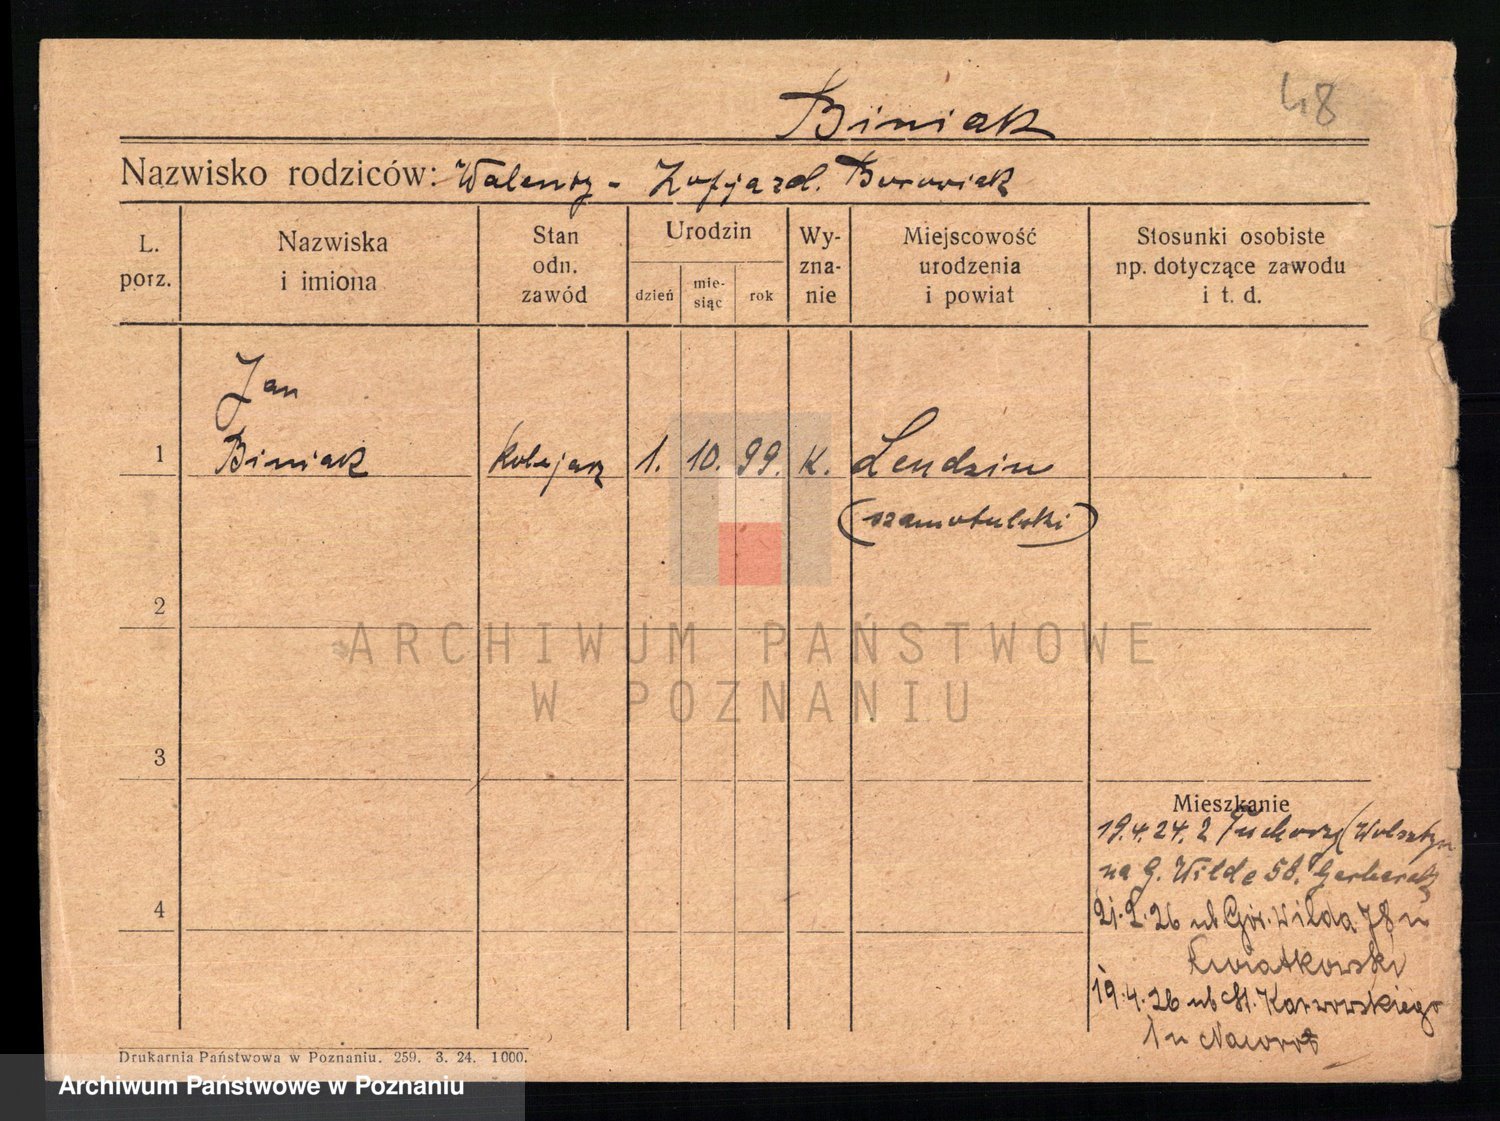 48
Biniak
Nazwisko rodziców: Walenty - Zofja zd. Borowiak
L. porz.
Nazwiska i imiona
Stan odn. zawód
Urodzin
dzień
mie-siąc
rok
Wy-zna-nie
Miejscowość urodzenia i powiat
Stosunki osobiste np. dotyczące zawodu i t. d.
Jan
1 Biniak kolejarz 1. 10. 99. K. Lendzin
(szamotulski)
2
3
4
Mieszkanie
19.4.24. z Tuchorzy (Wolsztyn
na G. Wilde 58.
21.2.26 ul. Gór. Wilda 78 u
Kwiatkowski
19.4.26 ul. St. Karwowskiego
1 u Nawrot
Drukarnia Państwowa w Poznaniu. 259. 3. 24. 1000.
ARCHIWUM PAŃSTWOWE
W POZNANIU
Archiwum Państwowe w Poznaniu